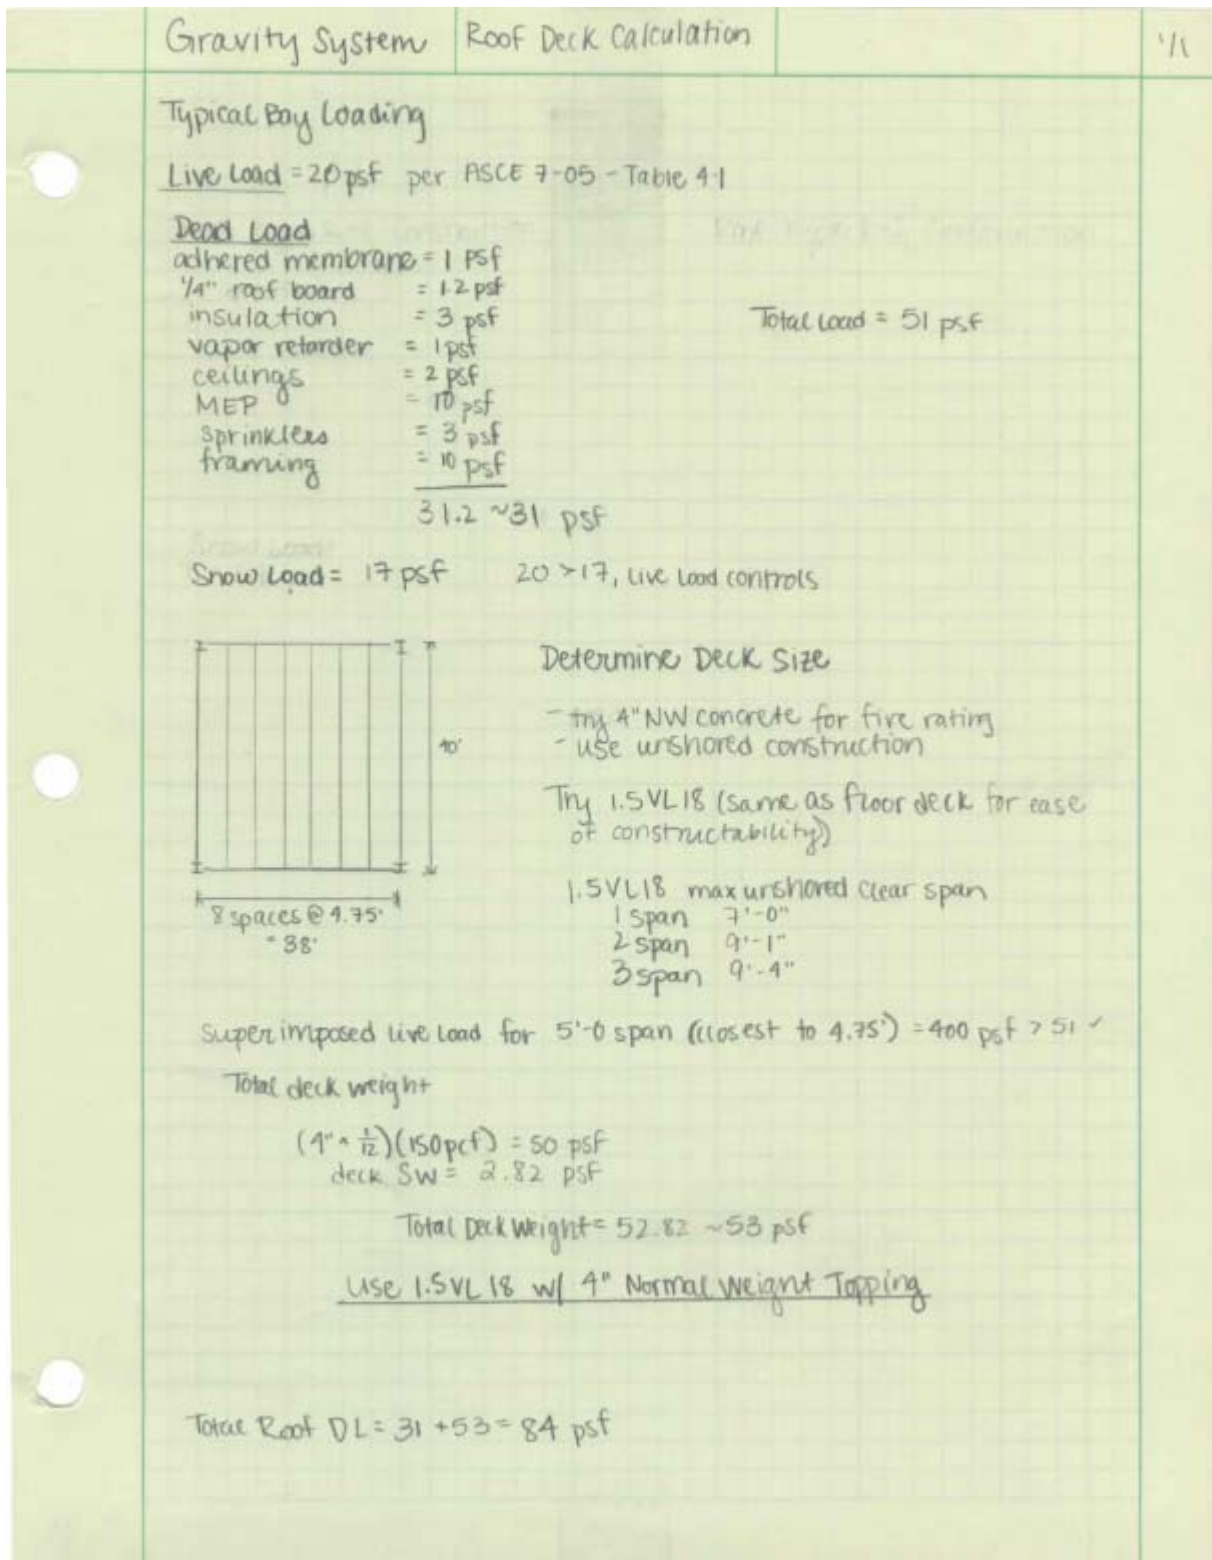 Gravity System
Roof Deck Calculation
1/1
Typical Bay Loading
Live Load = 20 psf per ASCE 7-05 - Table 4.1
Dead Load
adhered membrane = 1 psf
1/4" roof board = 1.2 psf
insulation = 3 psf
Total Load = 51 psf
vapor retarder = 1 psf
ceilings = 2 psf
MEP = 10 psf
sprinklers = 3 psf
framing = 10 psf
31.2 ~31 psf
Snow Load = 17 psf 20 > 17, Live Load controls
40'
8 spaces @ 4.75'
= 38'
Determine Deck Size
- try 4" NW concrete for fire rating
- use unshored construction
Try 1.5VL18 (same as floor deck for ease
of constructability)
1.5VL18 max unshored clear span
1 span 7'-0"
2 span 9'-1"
3 span 9'-4"
Superimposed live load for 5'-0 span (closest to 4.75') = 400 psf > 51 ✓
Total deck weight
(4" × 1/12)(150pcf) = 50 psf
deck SW = 2.82 psf
Total Deck Weight = 52.82 ~53 psf
Use 1.5VL18 w/ 4" Normal Weight Topping
Total Roof DL = 31 + 53 = 84 psf